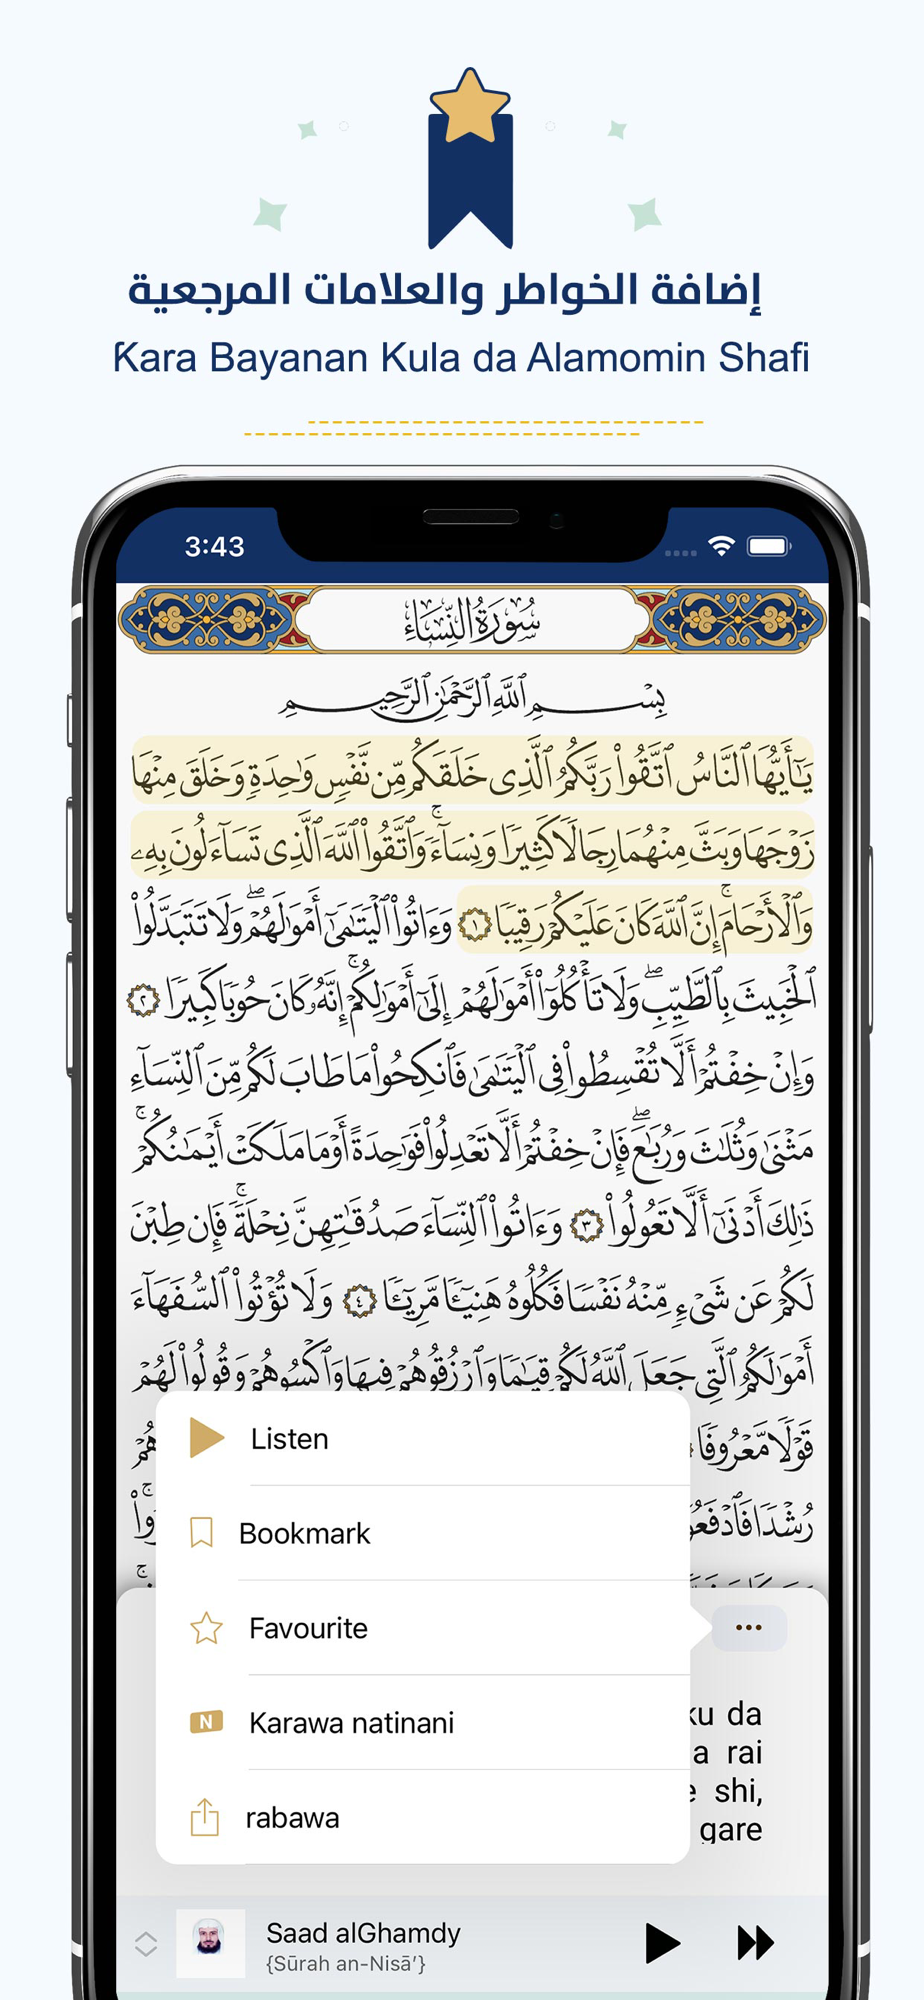 إضافة الخواطر والعلامات المرجعية
Ƙara Bayanan Kula da Alamomin Shafi
3:43
سُورَةُ النِّسَاءِ
بِسْمِ ٱللَّهِ ٱلرَّحْمَٰنِ ٱلرَّحِيمِ
يَٰٓأَيُّهَا ٱلنَّاسُ ٱتَّقُوا۟ رَبَّكُمُ ٱلَّذِى خَلَقَكُم مِّن نَّفْسٍ وَٰحِدَةٍ وَخَلَقَ مِنْهَا
زَوْجَهَا وَبَثَّ مِنْهُمَا رِجَالًا كَثِيرًا وَنِسَآءً ۚ وَٱتَّقُوا۟ ٱللَّهَ ٱلَّذِى تَسَآءَلُونَ بِهِۦ
وَٱلْأَرْحَامَ ۚ إِنَّ ٱللَّهَ كَانَ عَلَيْكُمْ رَقِيبًا ١ وَءَاتُوا۟ ٱلْيَتَٰمَىٰٓ أَمْوَٰلَهُمْ ۖ وَلَا تَتَبَدَّلُوا۟
ٱلْخَبِيثَ بِٱلطَّيِّبِ ۖ وَلَا تَأْكُلُوٓا۟ أَمْوَٰلَهُمْ إِلَىٰٓ أَمْوَٰلِكُمْ ۚ إِنَّهُۥ كَانَ حُوبًا كَبِيرًا ٢
وَإِنْ خِفْتُمْ أَلَّا تُقْسِطُوا۟ فِى ٱلْيَتَٰمَىٰ فَٱنكِحُوا۟ مَا طَابَ لَكُم مِّنَ ٱلنِّسَآءِ
مَثْنَىٰ وَثُلَٰثَ وَرُبَٰعَ ۖ فَإِنْ خِفْتُمْ أَلَّا تَعْدِلُوا۟ فَوَٰحِدَةً أَوْ مَا مَلَكَتْ أَيْمَٰنُكُمْ ۚ
ذَٰلِكَ أَدْنَىٰٓ أَلَّا تَعُولُوا۟ ٣ وَءَاتُوا۟ ٱلنِّسَآءَ صَدُقَٰتِهِنَّ نِحْلَةً ۚ فَإِن طِبْنَ
لَكُمْ عَن شَىْءٍ مِّنْهُ نَفْسًا فَكُلُوهُ هَنِيٓـًٔا مَّرِيٓـًٔا ٤ وَلَا تُؤْتُوا۟ ٱلسُّفَهَآءَ
أَمْوَٰلَكُمُ ٱلَّتِى جَعَلَ ٱللَّهُ لَكُمْ قِيَٰمًا وَٱرْزُقُوهُمْ فِيهَا وَٱكْسُوهُمْ وَقُولُوا۟ لَهُمْ
قَوْلًا مَّعْرُوفًا
رُشْدًا فَٱدْفَعُو
Listen
Bookmark
Favourite
N Karawa natinani
rabawa
ku da
a rai
e shi,
gare
Saad alGhamdy
{Sūrah an-Nisā’}